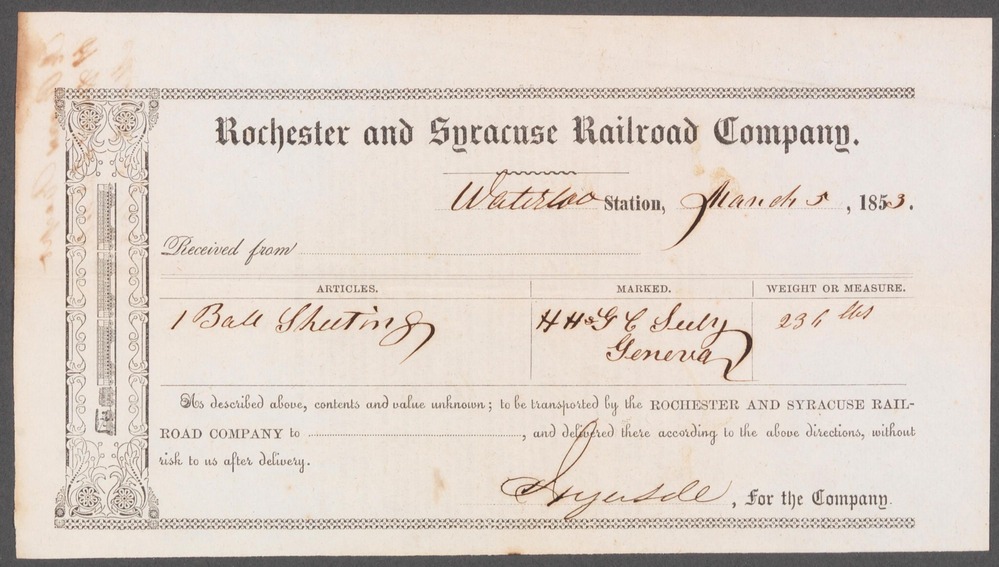 Rochester and Syracuse Railroad Company.
Waterloo Station, March 5, 1853.
Received from
ARTICLES. MARKED. WEIGHT OR MEASURE.
1 Bale Sheeting H H & G C Seely 236 lbs
Geneva
As described above, contents and value unknown; to be transported by the ROCHESTER AND SYRACUSE RAIL-
ROAD COMPANY to , and delivered there according to the above directions, without
risk to us after delivery.
Ingersoll, For the Company.